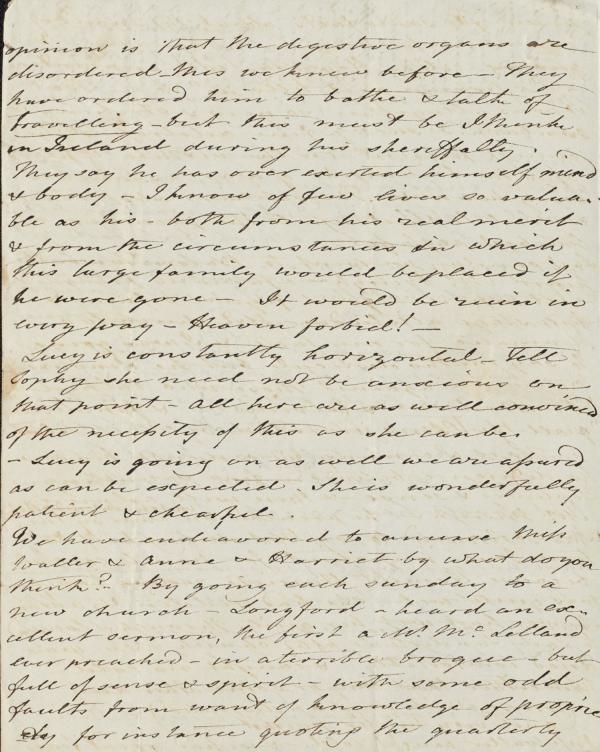 opinion is that the digestive organs are
disordered - this we knew before - They
have ordered him to bathe & talk of
travelling - but this must be I think
in Ireland during his sheriffalty.
They say he has over exerted himself mind
& body - I know of few lives so valua-
ble as his - both from his real merit
& from the circumstances in which
this large family would be placed if
he were gone - It would be ruin in
every way - Heaven forbid! -
Lucy is constantly horizontal - Tell
Sophy she need not be anxious on
that point - all here are as well convinced
of the necessity of this as she can be.
- Lucy is going on as well we are assured
as can be expected. She is wonderfully
patient & chearful.
We have endeavored to amuse Miss
Waller & Anne & Harriet by what do you
think? - By going each sunday to a
new church - Longford - heard an ex-
cellent sermon, the first a Mr. Mc. Lelland
ever preached - in a terrible brogue - but
full of sense & spirit - with some odd
faults from want of knowledge of proprie
ty for instance quoting the quarterly